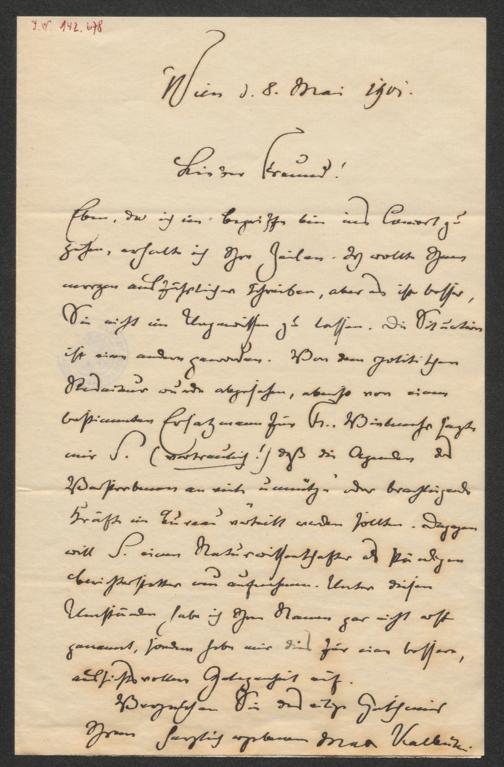 J.N. 142.678
Wien d. 8. Mai 1901.
Lieber Freund!
Eben, da ich im Begriffe bin ins Concert zu
gehen, erhalte ich Ihre Zeilen. Ich wollte Ihnen
morgen ausführlicher schreiben, aber es ist besser,
Sie nicht im Ungewissen zu lassen. Die Situation
ist eine andere geworden. Von dem politischen
Redakteur wurde abgesehen, ebenso von einem
bestimmten Ersatzmann für Fr.. Vielmehr sagte
mir S. (vertraulich!) daß die Agenden des
Verstorbenen an viele oder
Kräfte im Bureau verteilt werden sollten. Dagegen
will S. einen Naturwissenschafter als ständigen
Berichterstatter neu aufnehmen. Unter diesen
Umständen habe ich Ihren Namen gar nicht erst
genannt, sondern hebe mir dies für eine bessere,
aussichtsvollere Gelegenheit auf.
Sie das eilige
Ihrem herzlich ergebenen Max Kalbeck.